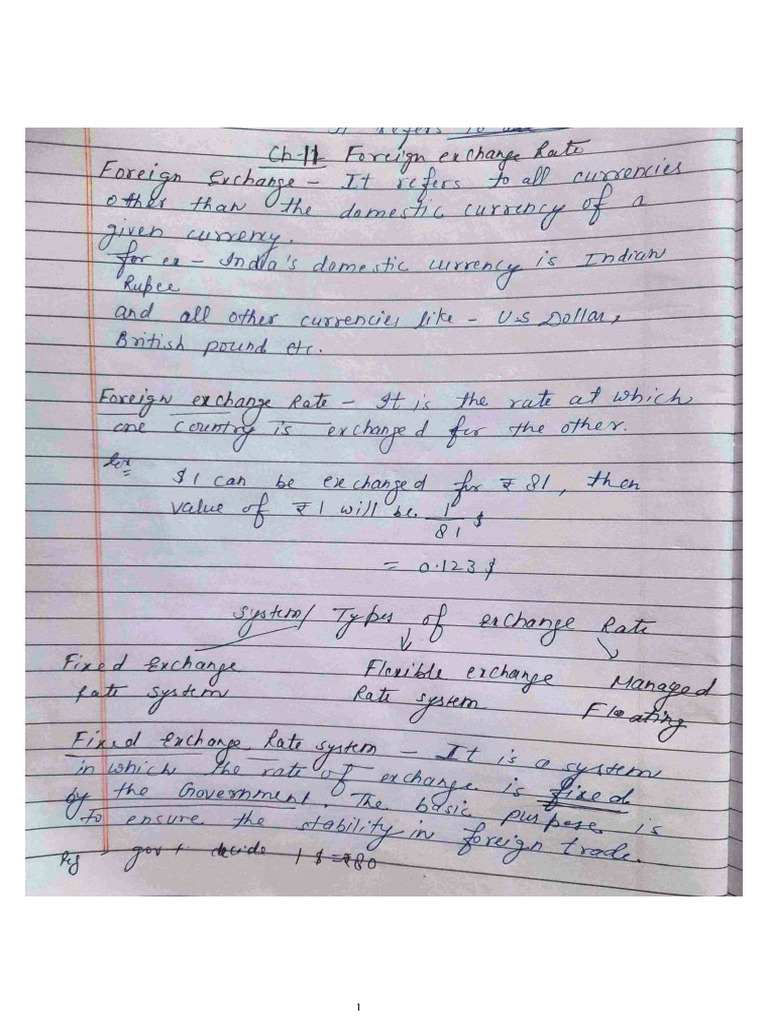 It refers to
Ch-11 Foreign exchange Rate
Foreign Exchange - It refers to all currencies
other than the domestic currency of a
given currency.
for ex - India's domestic currency is Indian
Rupee
and all other currencies like - U.S Dollar,
British pound etc.
Foreign exchange Rate - It is the rate at which
one country is exchanged for the other.
for
$1 can be exchanged for ₹ 81, then
value of ₹1 will be 1
81 $
= 0.123 $
System/ Types of exchange Rate
Fixed Exchange Flexible exchange Managed
Rate system Rate system Floating
Fixed exchange Rate system - It is a system
in which the rate of exchange is fixed
by the Government. The basic purpose is
to ensure the stability in foreign trade.
govt decide 1 $ = ₹80
1